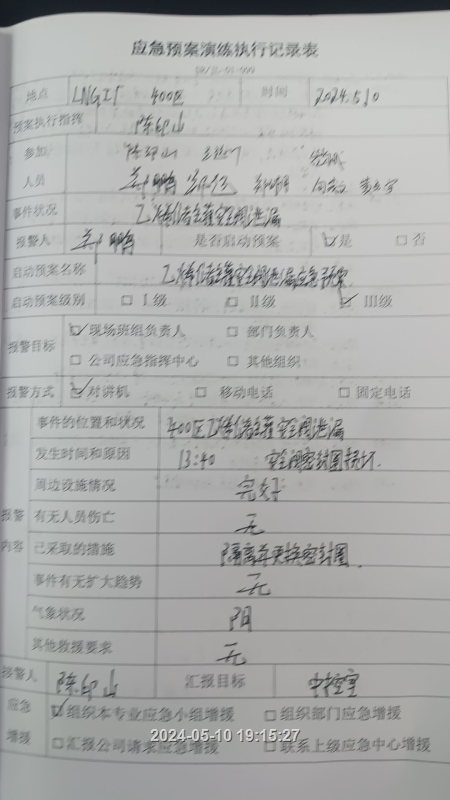 应急预案演练执行记录表
地点 LNG工厂 400区 时间 2024.5.10
预案执行指挥 陈印山
参加 陈印山
人员
事件状况 乙烯储罐安全阀泄漏
报警人 鹏 是否启动预案 ☑是 □否
启动预案名称 乙烯储罐安全阀泄漏应急预案
启动预案级别 □ I级 □ II级 ☑ III级
报警目标 ☑现场班组负责人 □ 部门负责人
□ 公司应急指挥中心 □ 其他组织
报警方式 ☑对讲机 □ 移动电话 □ 固定电话
事件的位置和状况 400区乙烯储罐安全阀泄漏
发生时间和原因 13:40 安全阀密封圈损坏.
周边设施情况 完好
报警 有无人员伤亡 无
内容 已采取的措施 隔离并更换密封圈.
事件有无扩大趋势 无
气象状况 阴
其他救援要求 无
报警人 陈印山 汇报目标 中控室
应急 ☑组织本专业应急小组增援 □组织部门应急增援
增援 □汇报公司请求应急增援 □联系上级应急中心增援
2024-05-10 19:15:27